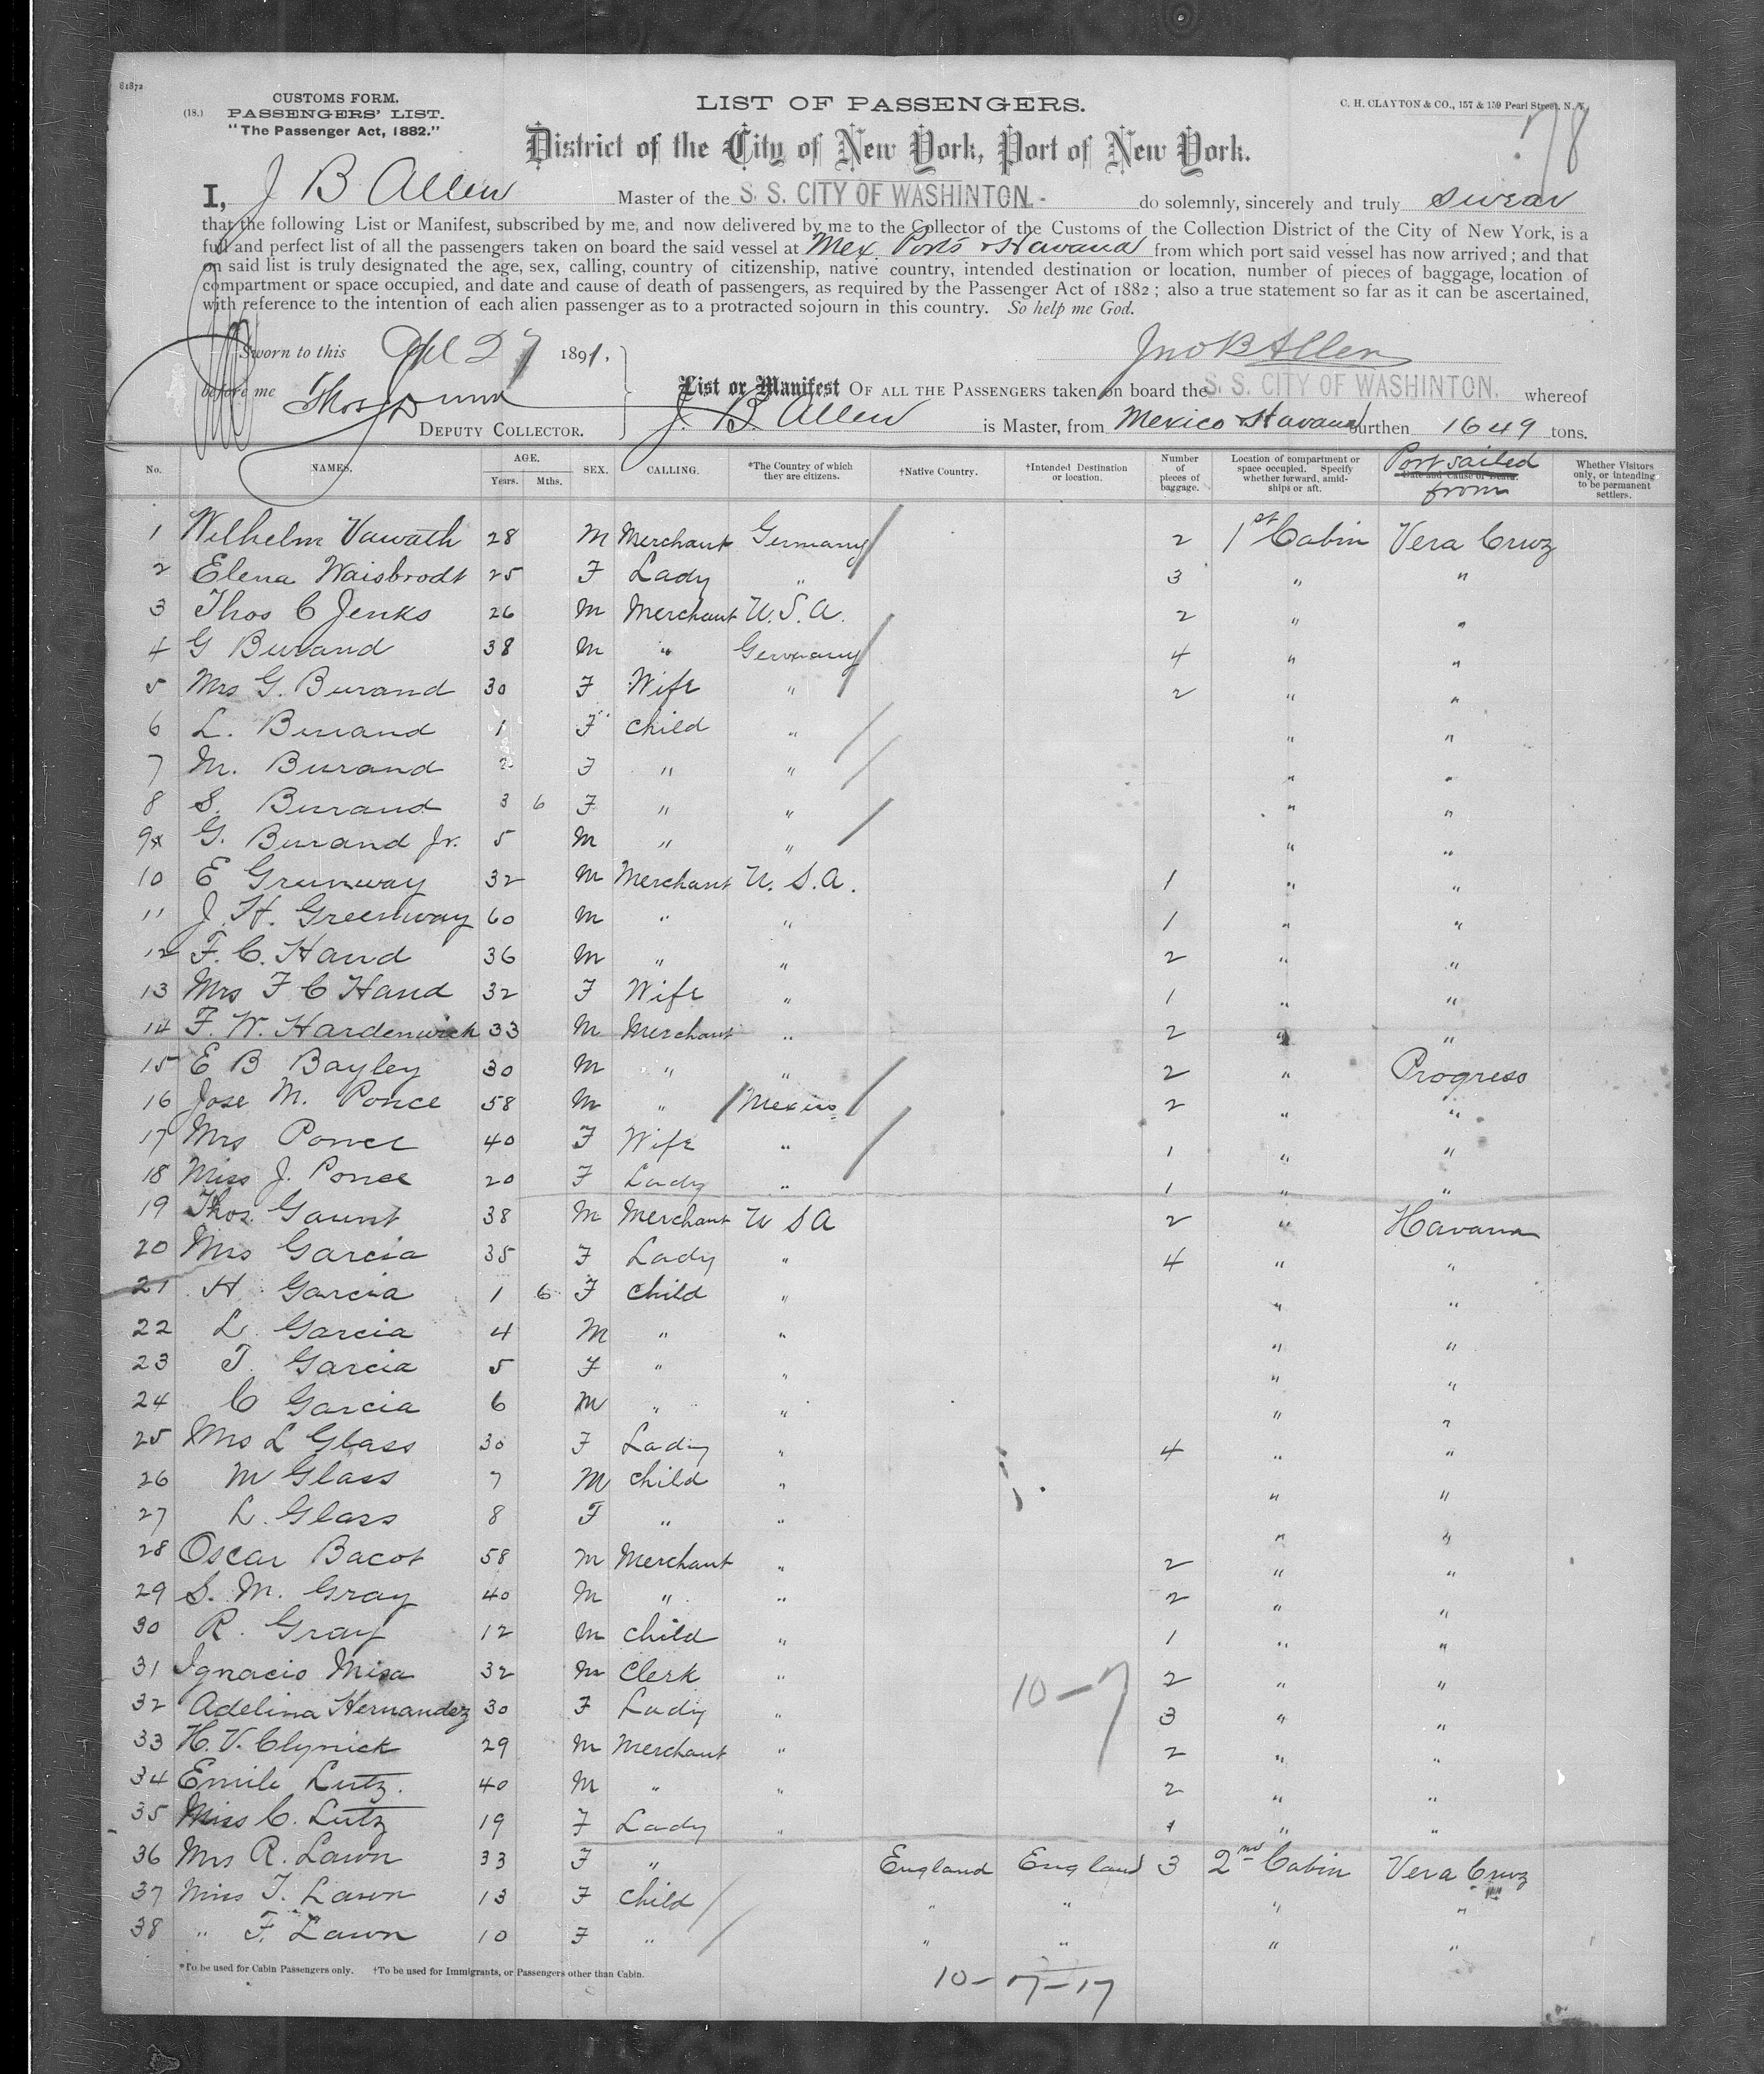 81872
CUSTOMS FORM.
(18.) PASSENGERS' LIST.
"The Passenger Act, 1882."
LIST OF PASSENGERS.
C. H. CLAYTON & CO., 157 & 159 Pearl Street, N. Y.
78
District of the City of New York, Port of New York.
I, J B Allen Master of the S. S. CITY OF WASHINTON. do solemnly, sincerely and truly swear
that the following List or Manifest, subscribed by me, and now delivered by me to the Collector of the Customs of the Collection District of the City of New York, is a
full and perfect list of all the passengers taken on board the said vessel at Mex. Ports & Havana from which port said vessel has now arrived; and that
on said list is truly designated the age, sex, calling, country of citizenship, native country, intended destination or location, number of pieces of baggage, location of
compartment or space occupied, and date and cause of death of passengers, as required by the Passenger Act of 1882; also a true statement so far as it can be ascertained,
with reference to the intention of each alien passenger as to a protracted sojourn in this country. So help me God.
Sworn to this 27 1891,
Jno B Allen
before me Thos
List or Manifest OF ALL THE PASSENGERS taken on board the S. S. CITY OF WASHINTON. whereof
DEPUTY COLLECTOR.
J. B. Allen is Master, from Mexico & Havana burthen 1649 tons.
No. NAMES. AGE. Years. Mths. SEX. CALLING. *The Country of which they are citizens. †Native Country. †Intended Destination or location. Number of pieces of baggage. Location of compartment or space occupied. Specify whether forward, amidships or aft. Date and Cause of Death. Port sailed from Whether Visitors only, or intending to be permanent settlers.
1 Wilhelm Vawath 28 M Merchant Germany 2 1st Cabin Vera Cruz
2 Elena Waisbrodt 25 F Lady " 3 " "
3 Thos C Jenks 26 M Merchant U.S.A. 2 " "
4 G Burand 38 M " Germany 4 " "
5 Mrs G. Burand 30 F Wife " 2 " "
6 L. Burand 1 F child " " "
7 M. Burand 2 F " " " "
8 S. Burand 3 6 F " " " "
9x G. Burand Jr. 5 M " " " "
10 E Grunway 32 M Merchant U.S.A. 1 " "
11 J. H. Greenway 60 M " " 1 " "
12 F. C. Hand 36 M " " 2 " "
13 Mrs F C Hand 32 F Wife " 1 " "
14 F. W. Hardenwick 33 M Merchant " 2 " "
15 E B Bayley 30 M " " 2 " Progreso
16 Jose M. Ponce 58 M " Mexico 2 " "
17 Mrs Ponce 40 F Wife " 1 " "
18 Miss J. Ponce 20 F Lady " 1 " "
19 Thos. Gaunt 38 M Merchant U S A 2 " Havana
20 Mrs Garcia 35 F Lady " 4 " "
21 H Garcia 1 6 F child " " "
22 L. Garcia 4 M " " " "
23 T. Garcia 5 F " " " "
24 C Garcia 6 M " " " "
25 Mrs L Glass 30 F Lady " 4 " "
26 M Glass 7 M child " " "
27 L. Glass 8 F " " " "
28 Oscar Bacot 58 M Merchant " 2 " "
29 S. M. Gray 40 M " " 2 " "
30 R. Gray 12 M child " 1 " "
31 Ignacio Misa 32 M Clerk " 2 " "
32 Adelina Hernandez 30 F Lady " 3 " "
33 H. V. Clynick 29 M Merchant " 2 " "
34 Emile Lutz. 40 M " " 2 " "
35 Miss C. Lutz 19 F Lady " 1 " "
36 Mrs R. Lawn 33 F " England England 3 2nd Cabin Vera Cruz
37 Miss T. Lawn 13 F child " " " "
38 " F. Lawn 10 F " " " " "
10-7
*To be used for Cabin Passengers only. †To be used for Immigrants, or Passengers other than Cabin.
10-7-17